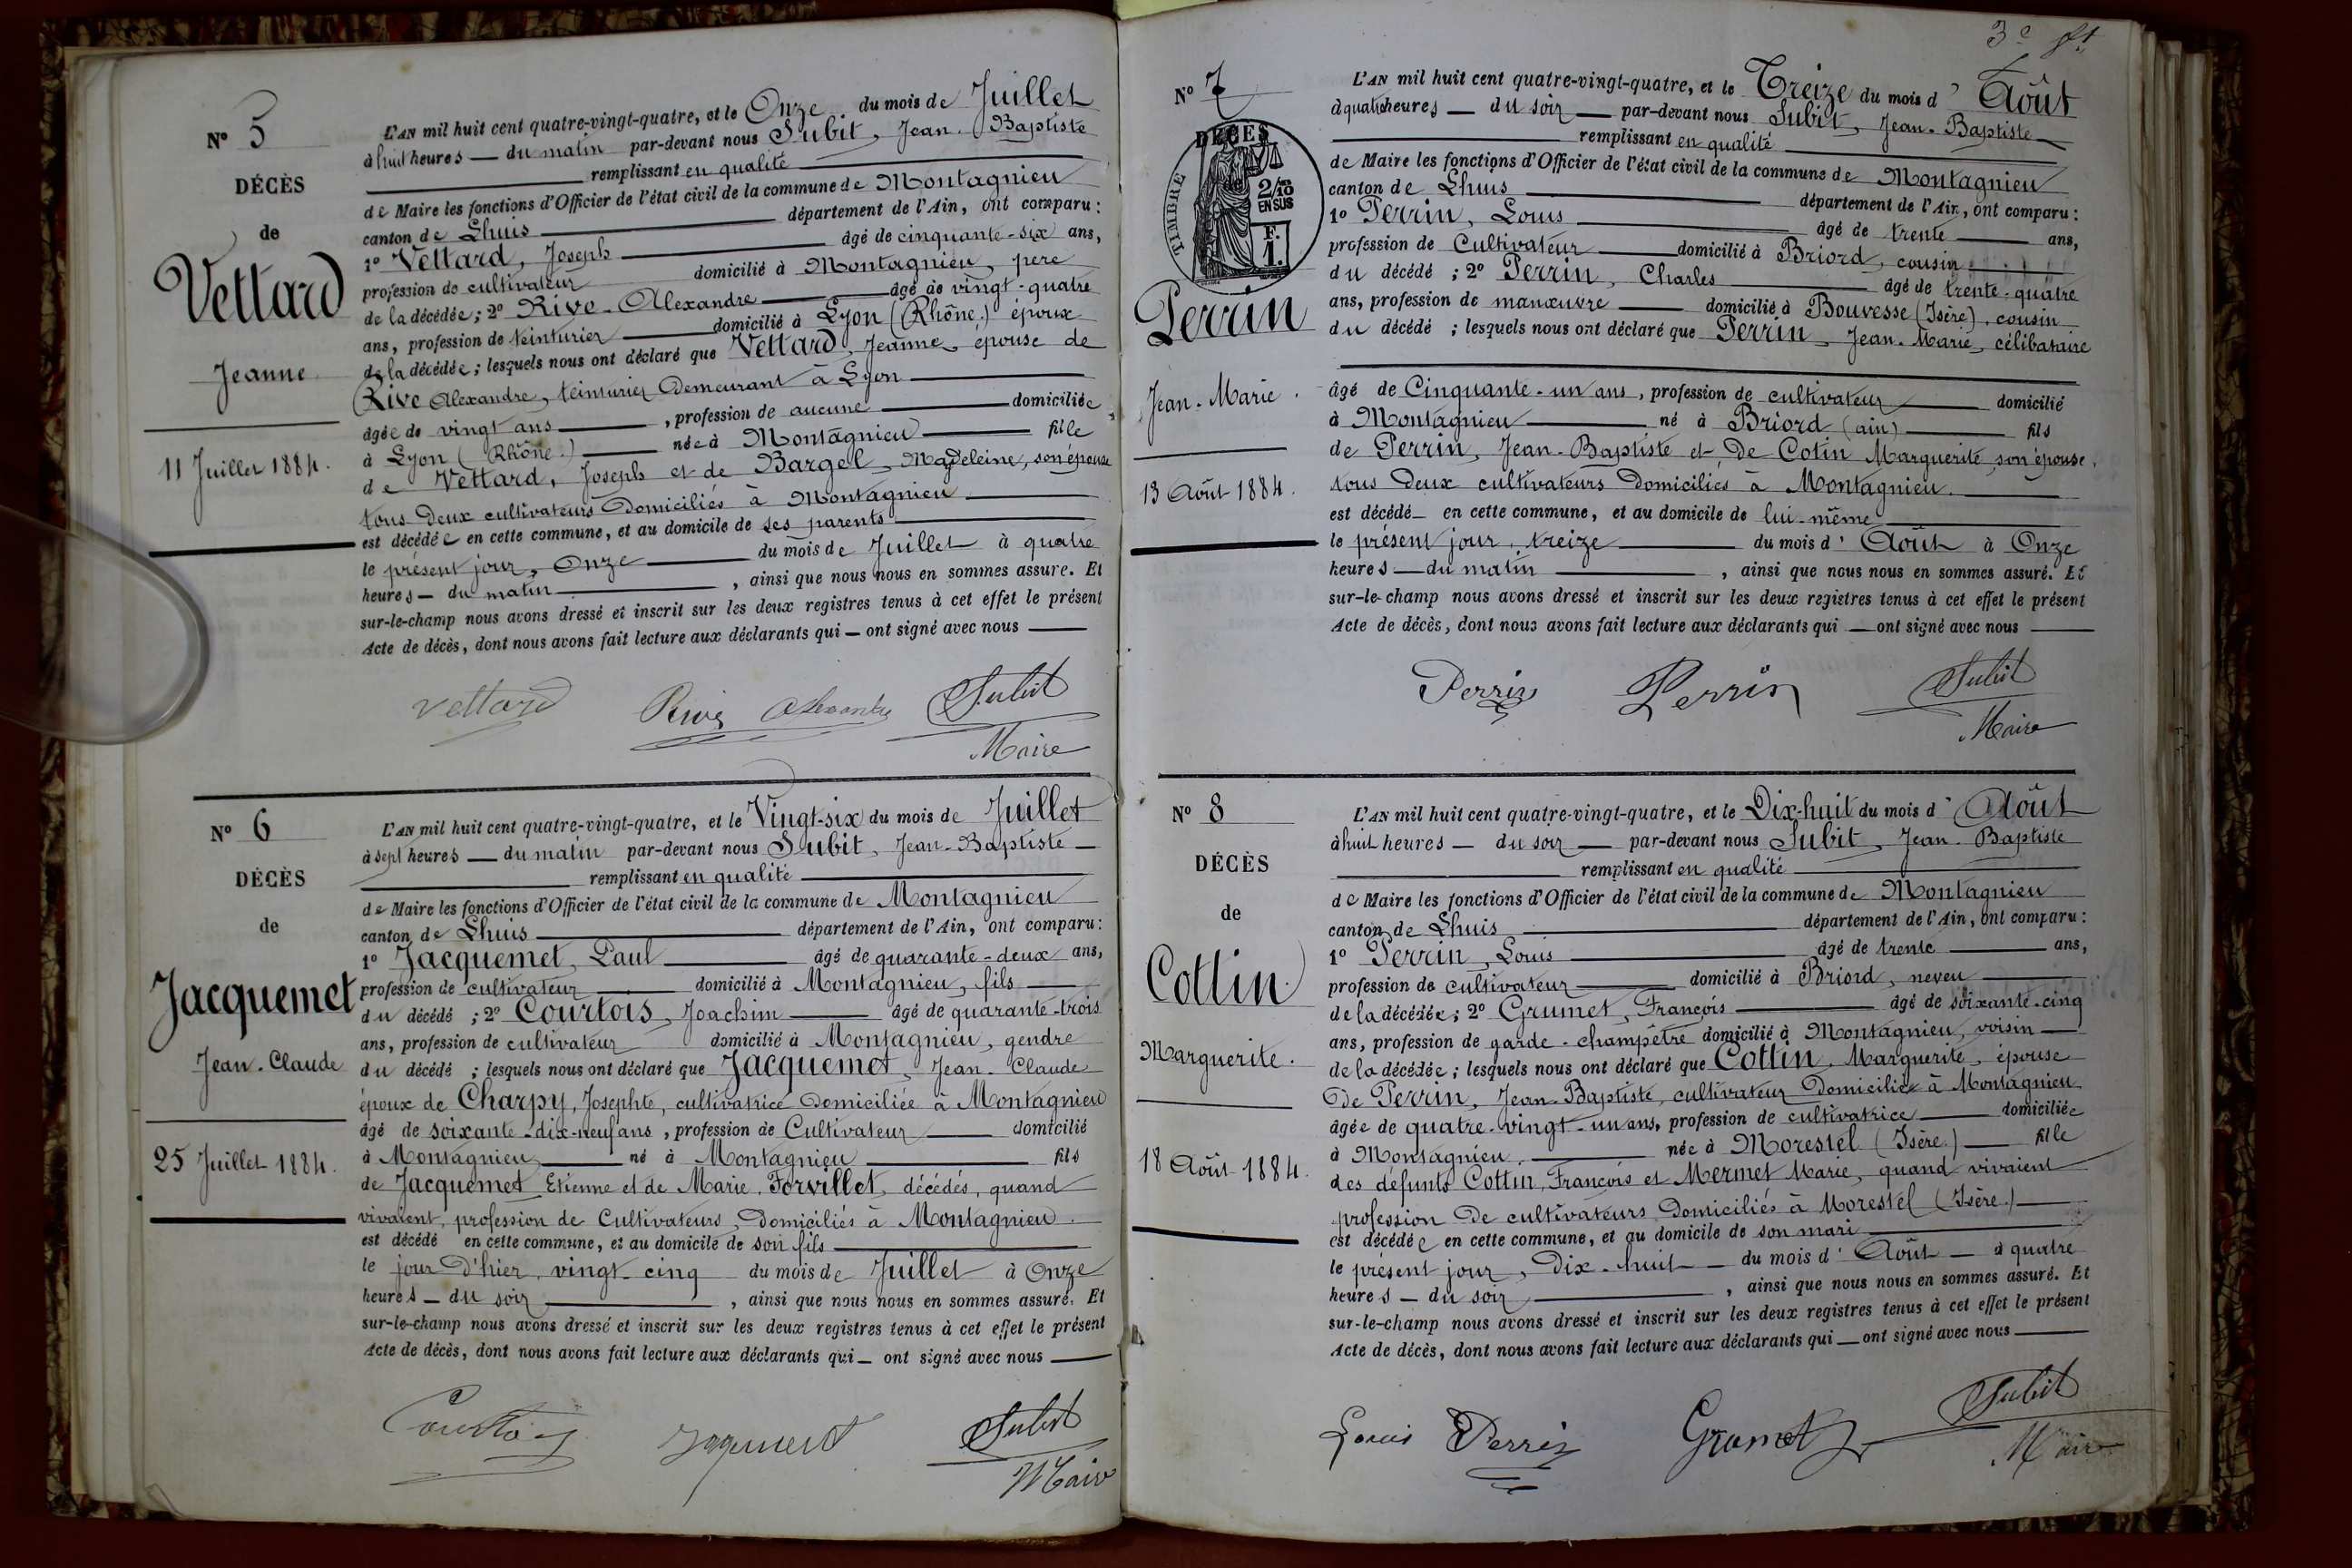 Nº 5
DÉCÈS
de
Vettard
Jeanne
11 Juillet 1884.
L'AN mil huit cent quatre-vingt-quatre, et le Onze du mois de Juillet
à huit heures — du matin par-devant nous Subit, Jean-Baptiste
remplissant en qualité
de Maire les fonctions d'Officier de l'état civil de la commune de Montagnieu
canton de Lhuis département de l'Ain, ont comparu :
1º Vettard, Joseph âgé de cinquante-six ans,
profession de cultivateur domicilié à Montagnieu, père
de la décédée ; 2º Rive-Alexandre âgé de vingt-quatre
ans, profession de teinturier domicilié à Lyon (Rhône) époux
de la décédée ; lesquels nous ont déclaré que Vettard, Jeanne, épouse de
Rive Alexandre, teinturier Demeurant à Lyon
âgée de vingt ans, profession de aucune domiciliée
à Lyon (Rhône) née à Montagnieu fille
de Vettard, Joseph et de Bargel, Magdeleine, son épouse
tous Deux cultivateurs Domiciliés à Montagnieu
est décédée en cette commune, et au domicile de ses parents
le présent jour, Onze du mois de Juillet à quatre
heures — du matin, ainsi que nous nous en sommes assuré. Et
sur-le-champ nous avons dressé et inscrit sur les deux registres tenus à cet effet le présent
Acte de décès, dont nous avons fait lecture aux déclarants qui — ont signé avec nous
Vettard Rive Alexandre Subit
Maire
Nº 6
DÉCÈS
de
Jacquemet
Jean-Claude
25 Juillet 1884.
L'AN mil huit cent quatre-vingt-quatre, et le Vingt-six du mois de Juillet
à sept heures — du matin par-devant nous Subit, Jean-Baptiste —
remplissant en qualité
de Maire les fonctions d'Officier de l'état civil de la commune de Montagnieu
canton de Lhuis département de l'Ain, ont comparu :
1º Jacquemet, Paul âgé de quarante-deux ans,
profession de cultivateur domicilié à Montagnieu, fils
du décédé ; 2º Courtois, Joachim âgé de quarante-trois
ans, profession de cultivateur domicilié à Montagnieu, gendre
du décédé ; lesquels nous ont déclaré que Jacquemet, Jean-Claude
époux de Charpy, Josephte, cultivatrice Domiciliée à Montagnieu
âgé de soixante-dix-neuf ans, profession de Cultivateur domicilié
à Montagnieu né à Montagnieu fils
de Jacquemet Etienne et de Marie Forvillet, décédés, quand
vivaient, profession de Cultivateurs, Domiciliés à Montagnieu.
est décédé en cette commune, et au domicile de son fils
le jour D'hier, vingt-cinq du mois de Juillet à Onze
heures — du soir, ainsi que nous nous en sommes assuré. Et
sur-le-champ nous avons dressé et inscrit sur les deux registres tenus à cet effet le présent
Acte de décès, dont nous avons fait lecture aux déclarants qui — ont signé avec nous
Courtois Jaquemet Subit
Maire
3e
Nº 7
DÉCES
TIMBRE
2/10
EN SUS
F.
1.
Perrin
Jean-Marie.
13 Août 1884.
L'AN mil huit cent quatre-vingt-quatre, et le Treize du mois d'Août
à quatre heures — du soir — par-devant nous Subit, Jean-Baptiste —
remplissant en qualité
de Maire les fonctions d'Officier de l'état civil de la commune de Montagnieu
canton de Lhuis département de l'Ain, ont comparu :
1º Perrin, Louis âgé de trente ans,
profession de Cultivateur domicilié à Briord, cousin
du décédé ; 2º Perrin, Charles âgé de trente-quatre
ans, profession de manœuvre domicilié à Bouvesse (Isère), cousin
du décédé ; lesquels nous ont déclaré que Perrin, Jean-Marie, célibataire
âgé de Cinquante-un ans, profession de cultivateur domicilié
à Montagnieu né à Briord (ain) fils
de Perrin, Jean-Baptiste et De Cotin Marguerite, son épouse,
tous Deux cultivateurs Domiciliés à Montagnieu.
est décédé en cette commune, et au domicile de lui-même
le présent jour, treize du mois d'Août à Onze
heures — du matin, ainsi que nous nous en sommes assuré. Et
sur-le-champ nous avons dressé et inscrit sur les deux registres tenus à cet effet le présent
Acte de décès, dont nous avons fait lecture aux déclarants qui — ont signé avec nous
Perrin Perrin Subit
Maire
Nº 8
DÉCÈS
de
Cottin
Marguerite.
18 Août 1884.
L'AN mil huit cent quatre-vingt-quatre, et le Dix-huit du mois d'Août
à huit heures — du soir — par-devant nous Subit, Jean-Baptiste
remplissant en qualité
de Maire les fonctions d'Officier de l'état civil de la commune de Montagnieu
canton de Lhuis département de l'Ain, ont comparu :
1º Perrin, Louis âgé de trente ans,
profession de cultivateur domicilié à Briord, neveu
de la décédée ; 2º Grumet, François âgé de soixante-cinq
ans, profession de garde-champêtre domicilié à Montagnieu, voisin
de la décédée ; lesquels nous ont déclaré que Cottin, Marguerite, épouse
De Perrin, Jean-Baptiste, cultivateur Domicilié à Montagnieu
âgée de quatre-vingt-un ans, profession de cultivatrice domiciliée
à Montagnieu. née à Morestel (Isère) fille
des défunts Cottin, François et Mermet Marie, quand vivaient
profession De cultivateurs Domiciliés à Morestel (Isère)
est décédée en cette commune, et au domicile de son mari
le présent jour, Dix-huit du mois d'Août — à quatre
heures — du soir, ainsi que nous nous en sommes assuré. Et
sur-le-champ nous avons dressé et inscrit sur les deux registres tenus à cet effet le présent
Acte de décès, dont nous avons fait lecture aux déclarants qui — ont signé avec nous
Louis Perrin Grumet Subit
Maire